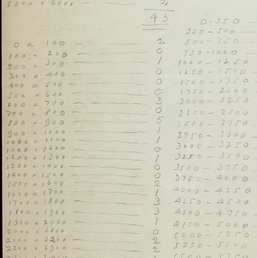 5500 a 6000 — 2
43
0 a 100 — 2
100 a 200 — 0
200 a 300 — 1
300 a 400 — 0
400 a 500 — 0
500 a 600 — 0
600 a 700 — 3
700 a 800 — 0
800 a 900 — 5
900 a 1000 — 1
1000 a 1100 — 1
1100 a 1200 — 0
1200 a 1300 — 1
1300 a 1400 — 0
1400 a 1500 — 0
1500 a 1600 — 2
1600 a 1700 — 1
1700 a 1800 — 3
1800 a 1900 — 3
1900 a 2000 — 1
2000 a 2100 — 0
2100 a 2200 — 2
2200 a 2300 — 2
0-250
250-500
500-750
750-1000
1000-1250
1250-1500
1500-1750
1750-2000
2000-2250
2250-2500
2500-2750
2750-3000
3000-3250
3250-3500
3500-3750
3750-4000
4000-4250
4250-4500
4500-4750
4750-5000
5000-5250
5250-5500